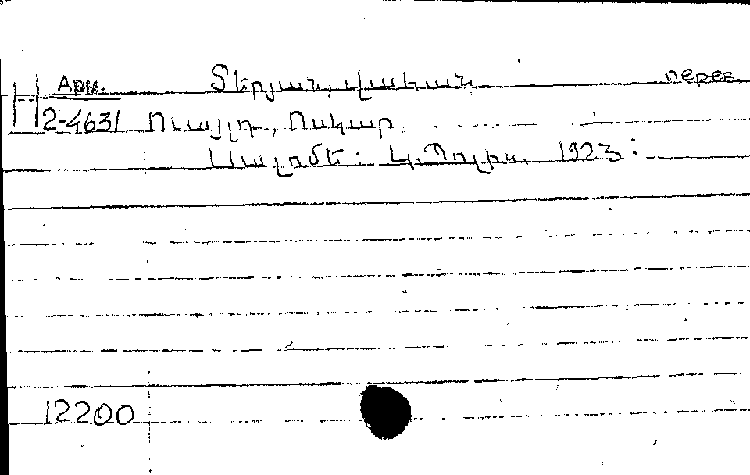 Арм. Տերյան, Վահան, перев.
2-4631 Ուայլդ, Օսկար.
Սալոմե: Կ.Պոլիս, 1923:
12200